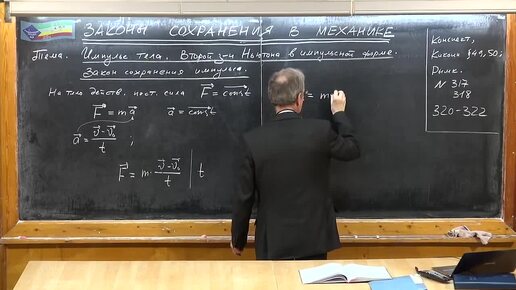 ЗАКОНЫ СОХРАНЕНИЯ В МЕХАНИКЕ
Тема. Импульс тела. Второй з-н Ньютона в импульсной форме.
Закон сохранения импульса.
На тело действ. пост. сила F⃗ = const
F⃗ = ma⃗ a⃗ = const
a⃗ = (v⃗ - v⃗₀)/t ;
F⃗ = m · (v⃗ - v⃗₀)/t | t
= m
Конспект,
§49, 50;
Римк.
N 317
318
320-322